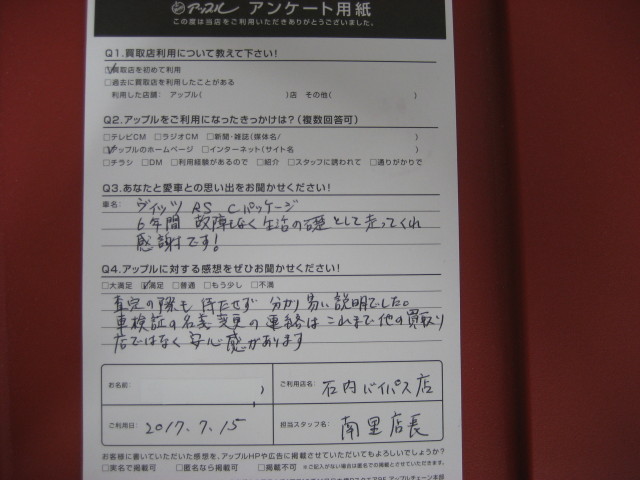 アップル アンケート用紙
この度は当店をご利用いただきありがとうございました。
Q1.買取店利用について教えて下さい!
☑買取店を初めて利用
□過去に買取店を利用したことがある
利用した店舗: アップル( )店 その他( )
Q2.アップルをご利用になったきっかけは?(複数回答可)
□テレビCM □ラジオCM □新聞・雑誌(媒体名/ )
☑アップルのホームページ □インターネット(サイト名 )
□チラシ □DM □利用経験があるので □紹介 □スタッフに誘われて □通りがかりで
Q3.あなたと愛車との思い出をお聞かせください!
車名: ヴィッツ RS Cパッケージ
6年間 故障もなく生活の足として走ってくれ
感謝です!
Q4.アップルに対する感想をぜひお聞かせください!
□大満足 ☑満足 □普通 □もう少し □不満
査定の際も 待たせず 分かり易い説明でした。
車検証の名義変更の連絡は これまで他の買取り
店ではなく安心感があります
お名前: )
ご利用店名: 石内バイパス店
ご利用日: 2017.7.15
担当スタッフ名: 南里店長
お客様に書いていただいた感想を、アップルHPや広告に掲載させていただいてもよろしいでしょうか?
□実名で掲載可 □匿名なら掲載可 □掲載不可 ※ご記入がない場合は匿名での掲載とさせていただきます。